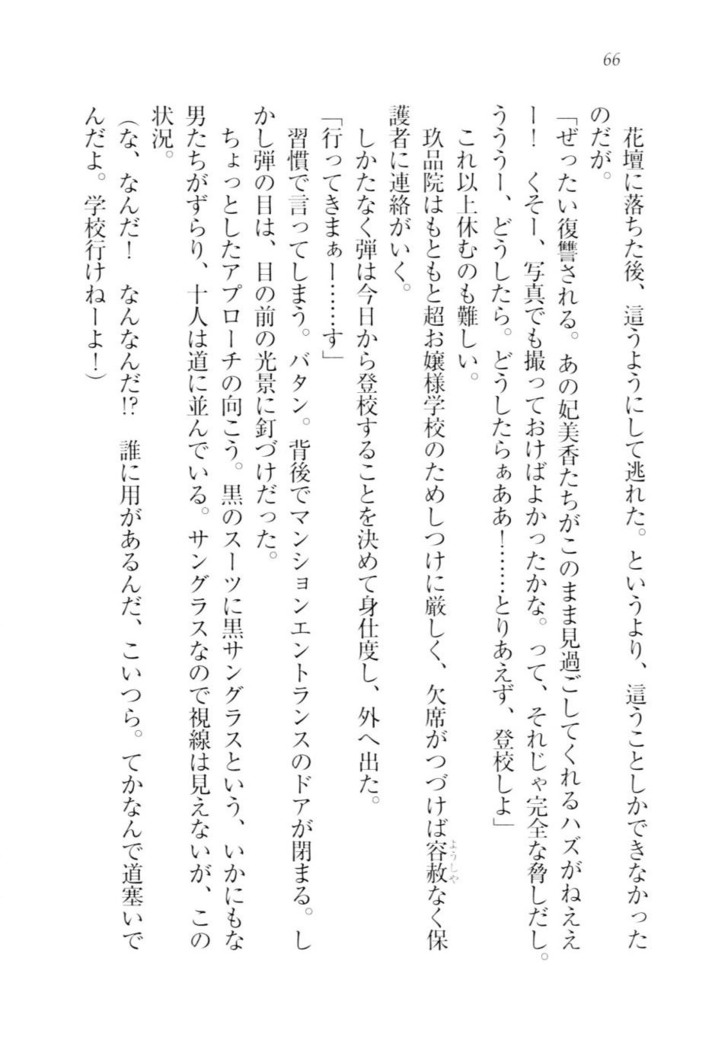 66
花壇に落ちた後、這うようにして逃れた。というより、這うことしかできなかった
のだが。
「ぜったい復讐される。あの妃美香たちがこのまま見過ごしてくれるハズがねええ
ー！　くそー、写真でも撮っておけばよかったかな。って、それじゃ完全な脅しだし。
うううー、どうしたら。どうしたらぁああ！……とりあえず、登校しよ」
これ以上休むのも難しい。
玖品院はもともと超お嬢様学校のためしつけに厳しく、欠席がつづけば容赦なく保
ようしゃ
護者に連絡がいく。
しかたなく弾は今日から登校することを決めて身仕度し、外へ出た。
「行ってきまぁー……す」
習慣で言ってしまう。バタン。背後でマンションエントランスのドアが閉まる。し
かし弾の目は、目の前の光景に釘づけだった。
ちょっとしたアプローチの向こう。黒のスーツに黒サングラスという、いかにもな
男たちがずらり、十人は道に並んでいる。サングラスなので視線は見えないが、この
状況。
（な、なんだ！　なんなんだ!?　誰に用があるんだ、こいつら。てかなんで道塞いで
んだよ。学校行けねーよ！）